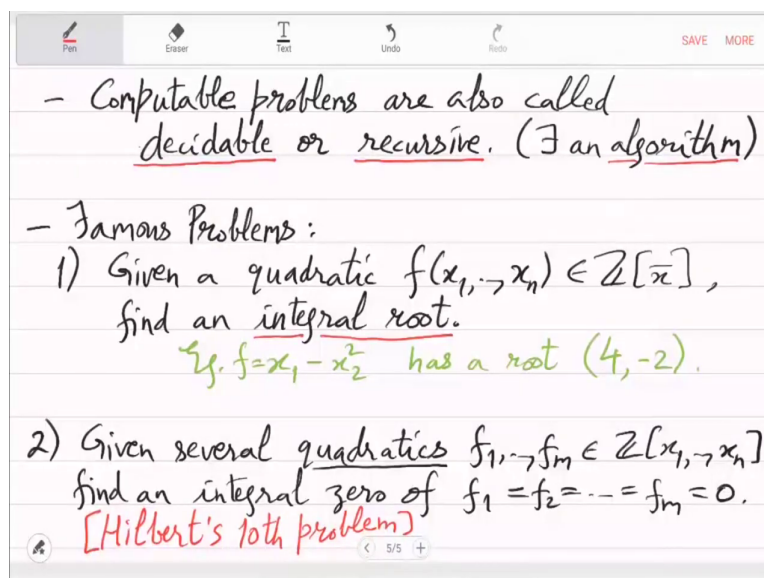 Pen Eraser Text Undo Redo SAVE MORE
- Computable problems are also called
decidable or recursive. (∃ an algorithm)
- Famous Problems:
1) Given a quadratic f(x₁,..,xₙ) ∈ ℤ[x̄],
find an integral root.
Eg. f=x₁-x₂² has a root (4,-2).
2) Given several quadratics f₁,..,fₘ ∈ ℤ[x₁,..,xₙ]
find an integral zero of f₁=f₂=...=fₘ=0.
[Hilbert's 10th problem]
< 5/5 +